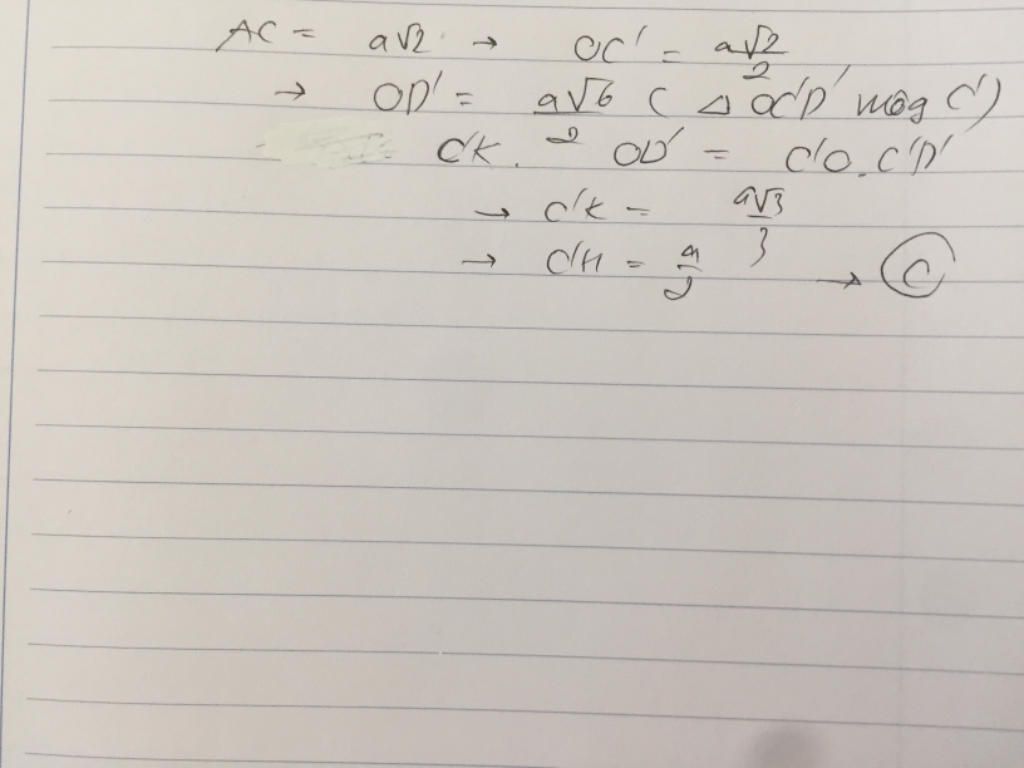 AC = a√2 → OC' = a√2/2
→ OD' = a√6/2 ( △ OC'D' vuông C')
C'K . OD' = C'O . C'D'
→ C'K = a√3/3
→ C'H = a/2 → C